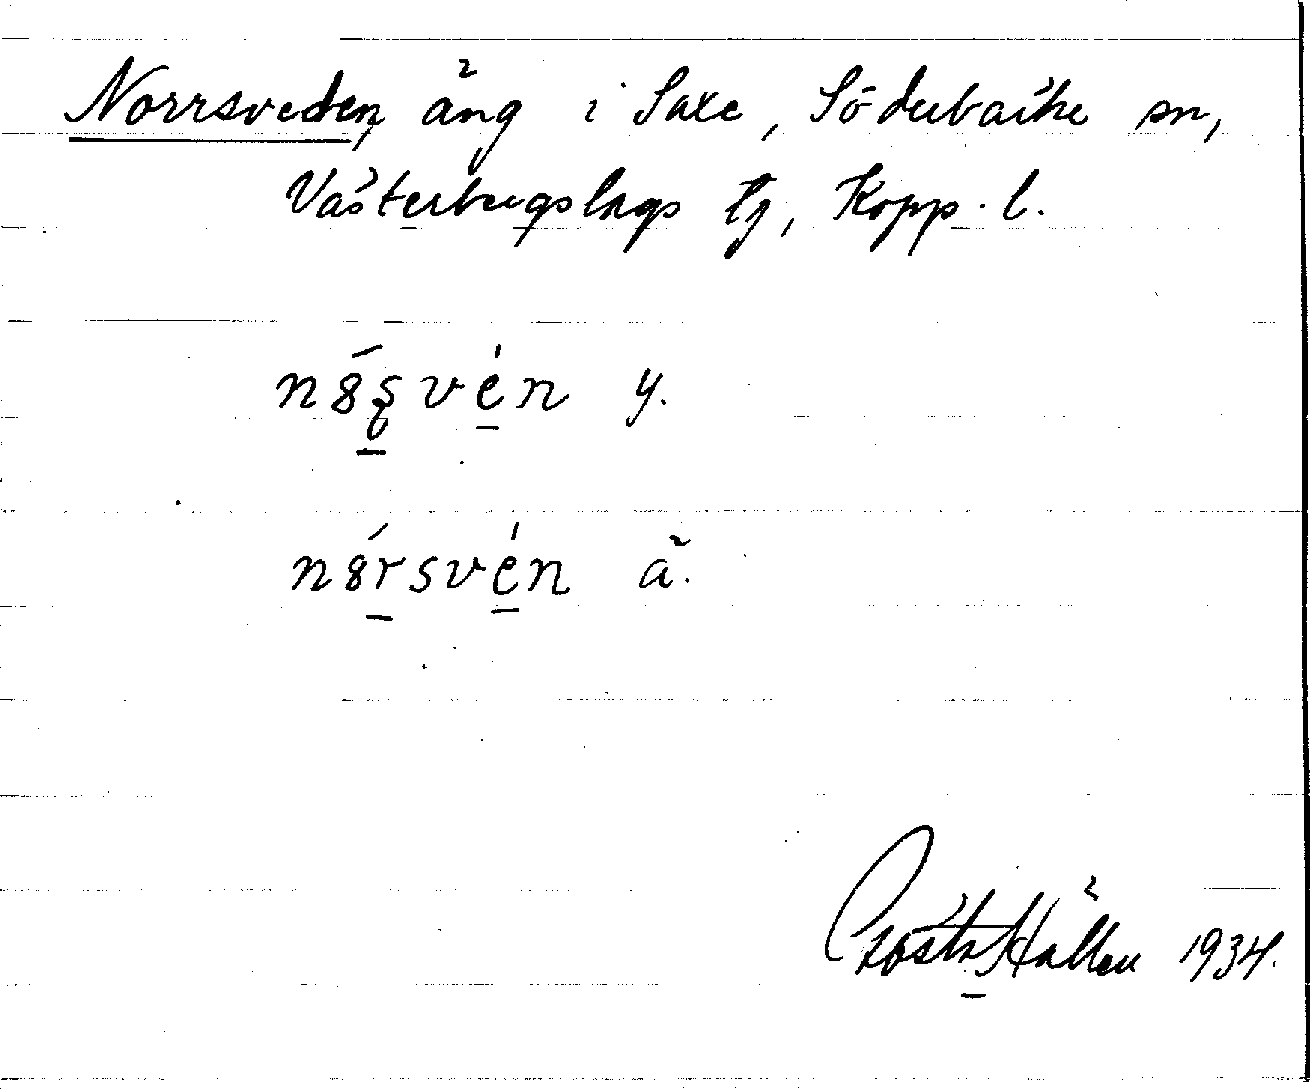 Norrsveden, äng i Saxe, Söderbärke sn,
Västerbergslags tg, Kopp. l.
n8́ʂvén y.
n8́rsvén ä.
Gösta Hållen 1934.